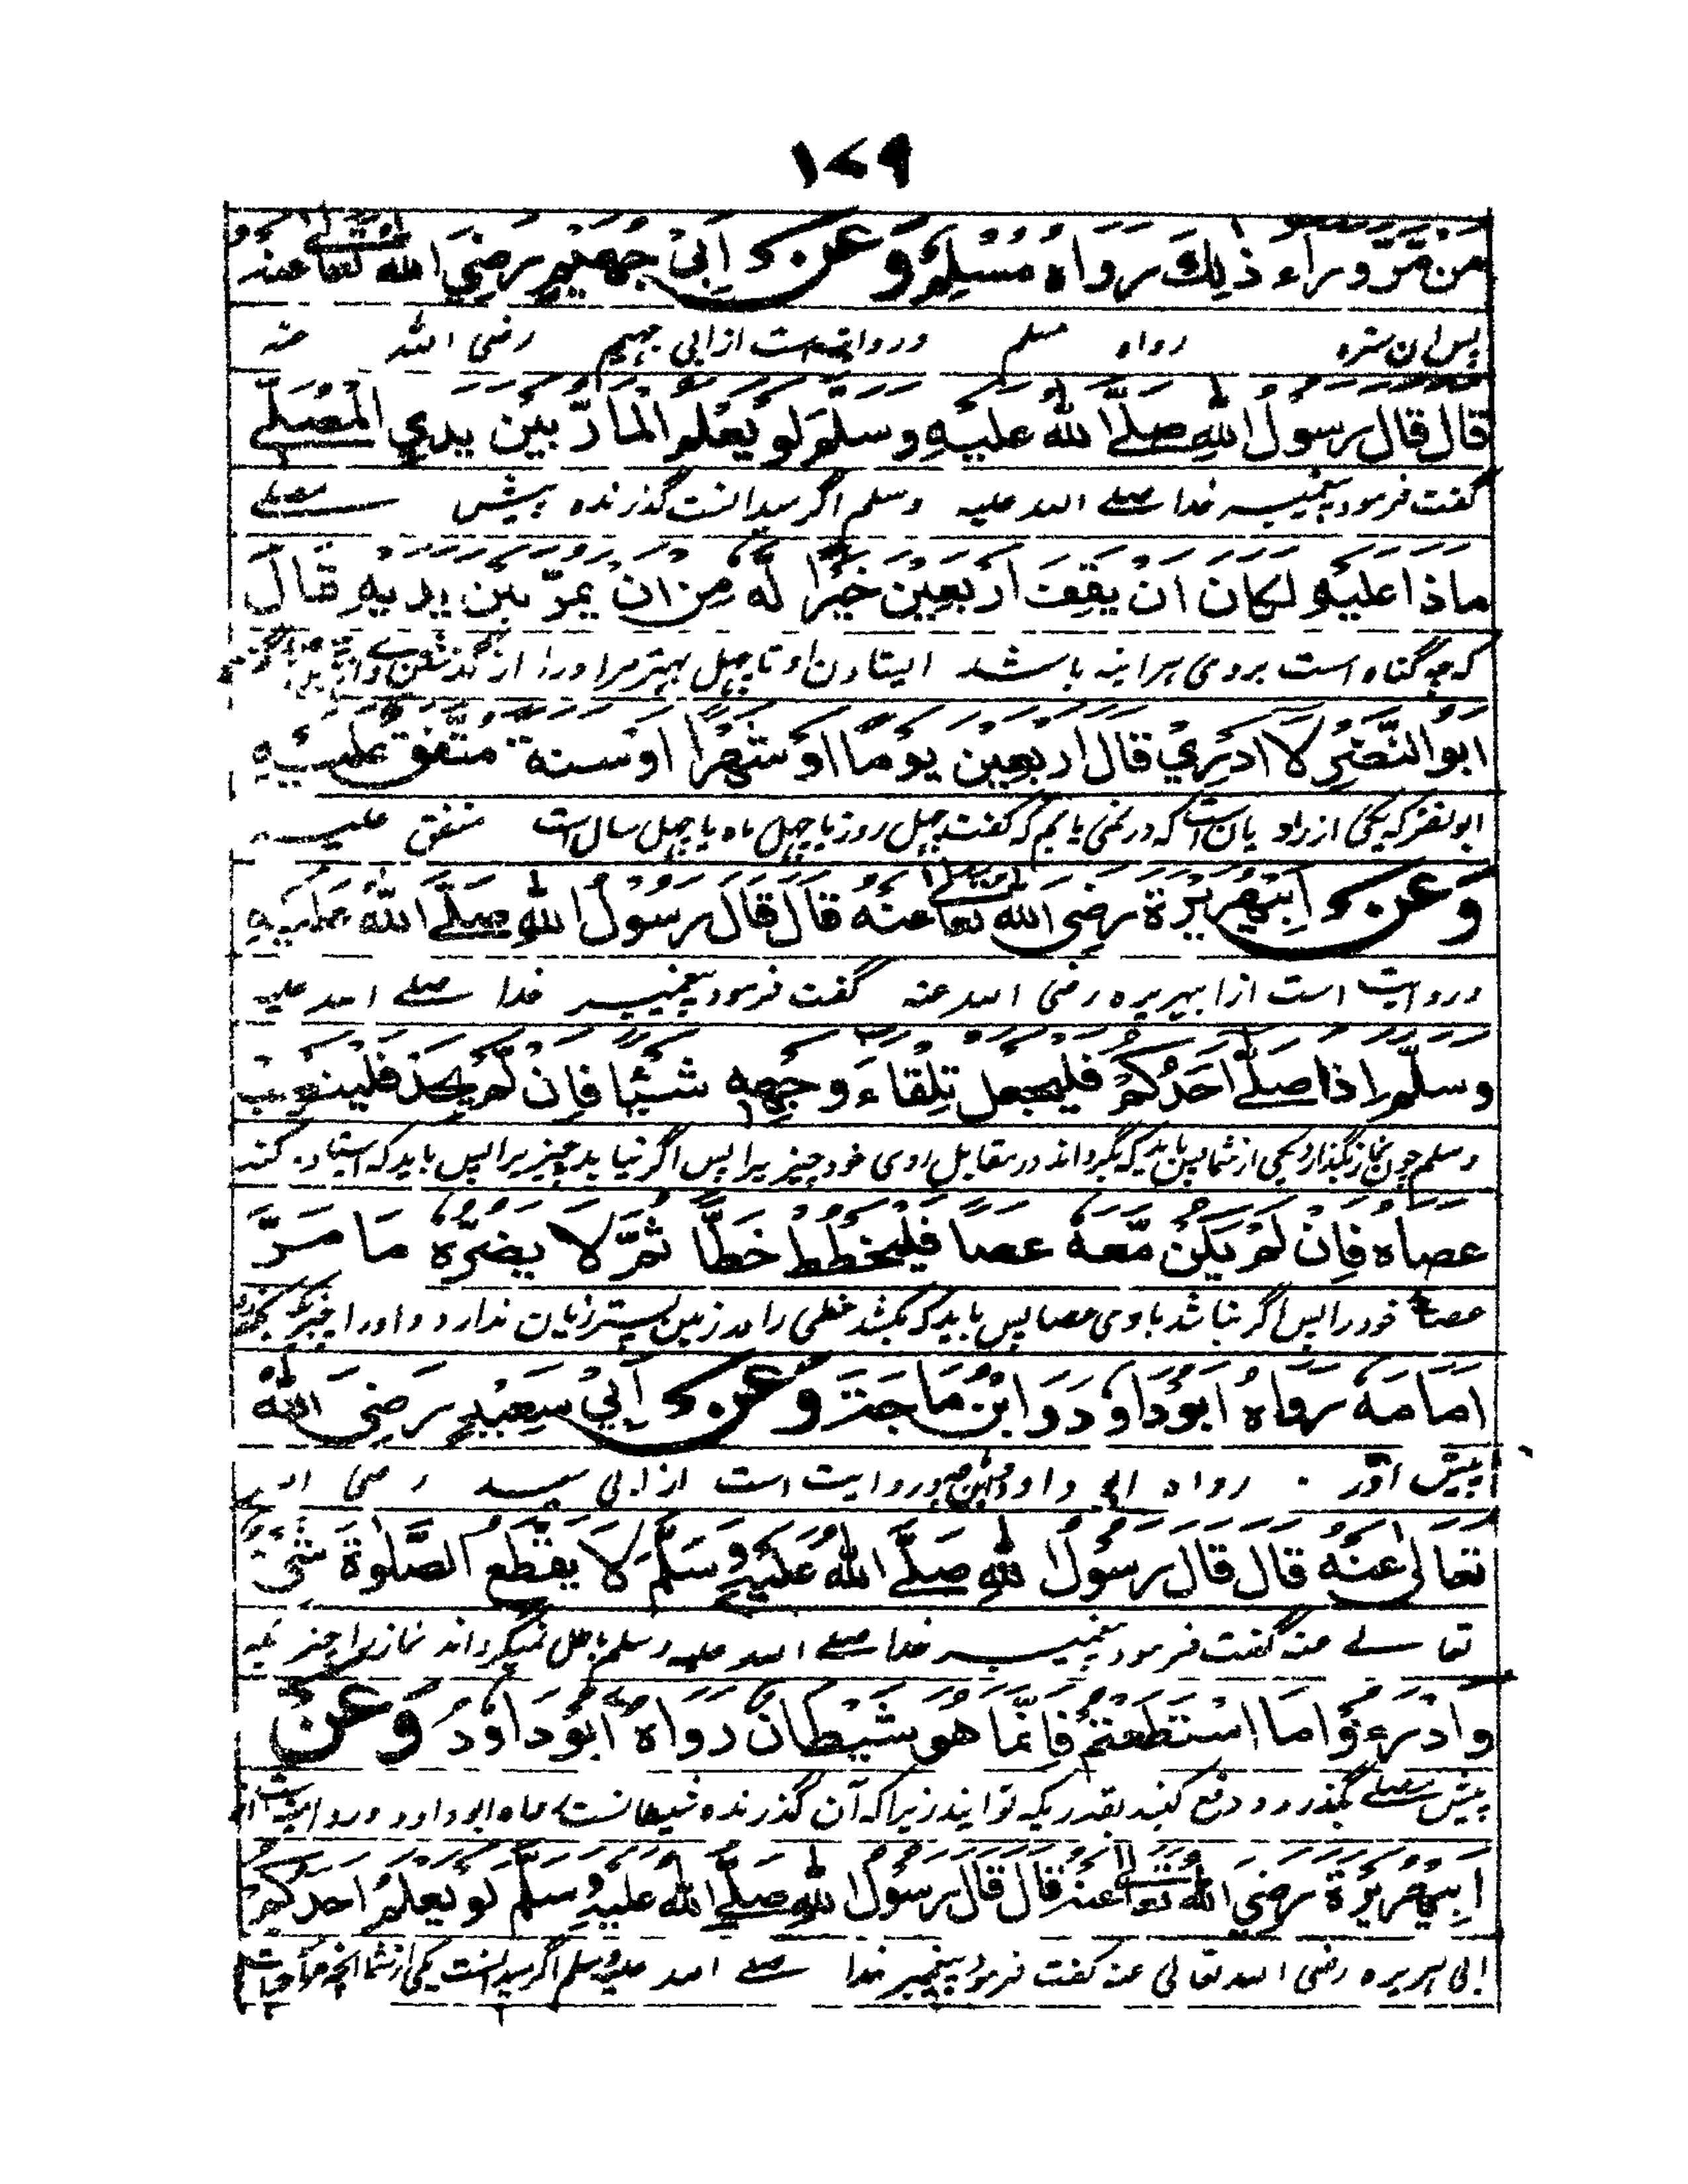 ۱۷۹
مَنْ مَّرَّ وراءَ ذٰلِكَ رَوَاهُ مُسْلِمٌ وَعَنْ اَبِيْ جُهَيْمٍ رَضِيَ اللهُ تَعَالٰى عَنْهُ
پس ان ستره رواه مسلم و روایت است از ابی جهیم رضی الله عنه
قَالَ قَالَ رَسُوْلُ اللهِ صَلَّى اللهُ عَلَيْهِ وَسَلَّمَ لَوْ يَعْلَمُ الْمَارُّ بَيْنَ يَدَيِ الْمُصَلِّيْ
گفت فرمود پیغمبر خدا صلے الله علیه وسلم اگر میدانست گذرنده پیش مصلے
مَاذَا عَلَيْهِ لَكَانَ اَنْ يَقِفَ اَرْبَعِيْنَ خَيْرًا لَّهٗ مِنْ اَنْ يَمُرَّ بَيْنَ يَدَيْهِ قَالَ
که چه گناه است بروی هراینه باشد ایستادن او تا چهل بهتر مر اورا از گذشتن وے
اَبُو النَّضْرِ لَا اَدْرِيْ قَالَ اَرْبَعِيْنَ يَوْمًا اَوْ شَهْرًا اَوْ سَنَةً مُتَّفَقٌ عَلَيْهِ
ابو نضر که یکی از راویان است که در نمی یابم که گفت چهل روز یا چهل ماه یا چهل سال است متفق علیه
وَعَنْ اَبِيْهُرَيْرَةَ رَضِيَ اللهُ تَعَالٰى عَنْهُ قَالَ قَالَ رَسُوْلُ اللهِ صَلَّى اللهُ عَلَيْهِ
و روایت است از ابهریره رضی الله عنه گفت فرمود پیغمبر خدا صلے الله علیه
وَسَلَّمَ اِذَا صَلّٰى اَحَدُكُمْ فَلْيَجْعَلْ تِلْقَاءَ وَجْهِهِ شَيْئًا فَاِنْ لَّمْ يَجِدْ فَلْيَنْصِبْ
وسلم چون نماز بگذارد یکی از شما پس باید که بگرداند در مقابل روی خود چیزیرا پس اگر نیابد چیزیرا پس باید که استاده کند
عَصَاهُ فَاِنْ لَمْ يَكُنْ مَّعَهٗ عَصًا فَلْيَخْطُطْ خَطًّا ثُمَّ لَا يَضُرُّهٗ مَا مَرَّ
عصاے خود را پس اگر نباشد با وی عصا پس باید که بکشد خطی را در زمین پستر زیان ندارد اورا چیزیکه بگذرد
اَمَامَهٗ رَوَاهُ اَبُوْدَاوٗدَ وَابْنُ مَاجَةَ وَعَنْ اَبِيْ سَعِيْدٍ رَضِيَ اللهُ
پیش او رواه ابو داود وابن ماجه و روایت است از ابی سعید رضی الله
تَعَالٰى عَنْهُ قَالَ قَالَ رَسُوْلُ اللهِ صَلَّى اللهُ عَلَيْهِ وَسَلَّمَ لَا يَقْطَعُ الصَّلٰوةَ شَيْءٌ
تعالے عنه گفت فرمود پیغمبر خدا صلے الله علیه وسلم باطل نمیگرداند نماز را چیزیکه
وَادْرَءُوْا مَا اسْتَطَعْتُمْ فَاِنَّمَا هُوَ شَيْطَانٌ رَوَاهُ اَبُوْدَاوٗدَ وَعَنْ
پیش مصلے بگذرد و دفع کنید بقدریکه توانید زیراکه آن گذرنده شیطانست رواه ابوداود و روایت است از
اَبِيْهُرَيْرَةَ رَضِيَ اللهُ تَعَالٰى عَنْهُ قَالَ قَالَ رَسُوْلُ اللهِ صَلَّى اللهُ عَلَيْهِ وَسَلَّمَ لَوْ يَعْلَمُ اَحَدُكُمْ
ابی هریره رضی الله تعالی عنه گفت فرمود پیغمبر خدا صلے الله علیه وسلم اگر میدانست یکی از شما انچه